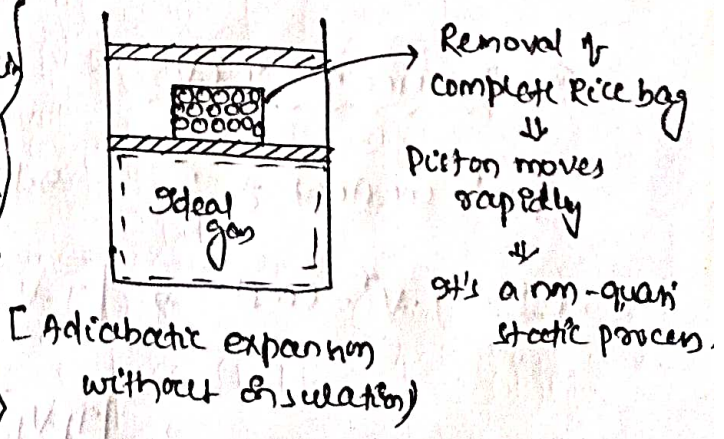 Removal of
complete Rice bag
⇓
Piston moves
rapidly
⇓
It's a non-quasi
static process.
Ideal
gas
[Adiabatic expansion
without insulation]